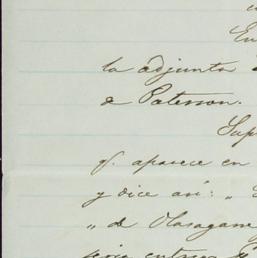 En
la adjunta
de Paterson.
Sup
q. aparece en
y dice así: "
" de Olasagane